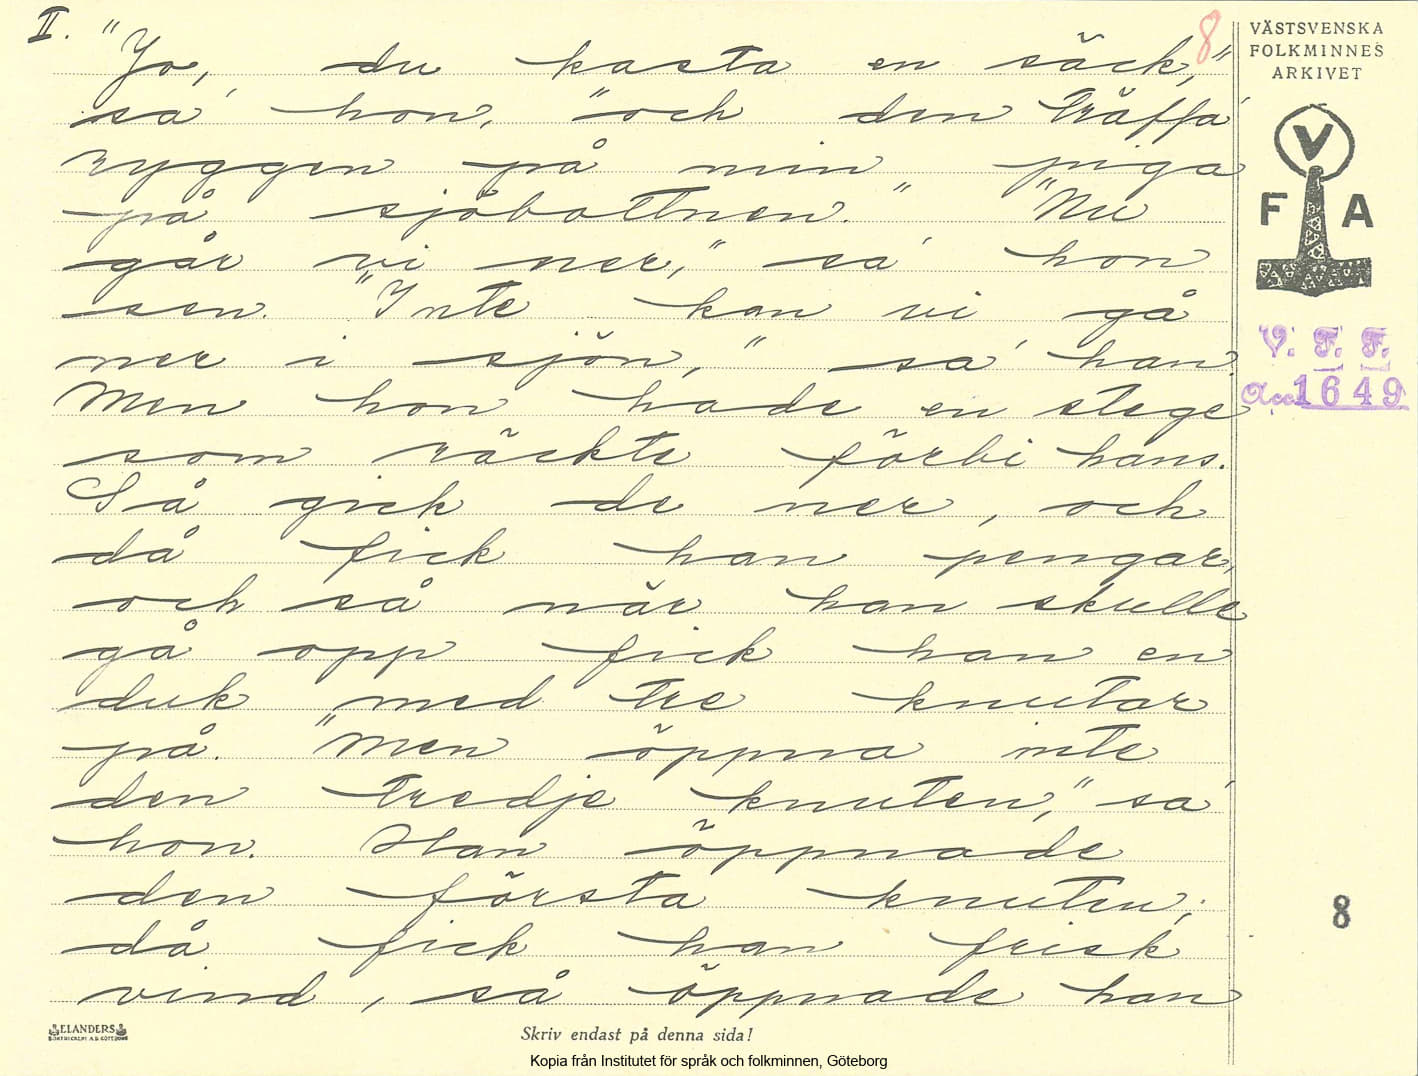 II. "Jo, du kasta en säck," 8
sa' hon, "och den träffa'
ryggen på min piga
på sjöbottnen." "Nu
går vi ner," sa' hon
sen. "Inte kan vi gå
ner i sjön," sa' han.
Men hon hade en stege
som räckte förbi hans.
Så gick de ner, och
då fick han pengar,
och så när han skulle
gå opp fick han en
duk med tre knutar
på. "Men öppna inte
den tredje knuten," sa'
hon. Han öppnade
den första knuten;
då fick han frisk
vind, så öppnade han
VÄSTSVENSKA
FOLKMINNES
ARKIVET
V
F A
V. F. F.
Acc. 1649
8
ELANDERS
BOKTRYCKERI A.B. GÖTEBORG
Skriv endast på denna sida!
Kopia från Institutet för språk och folkminnen, Göteborg